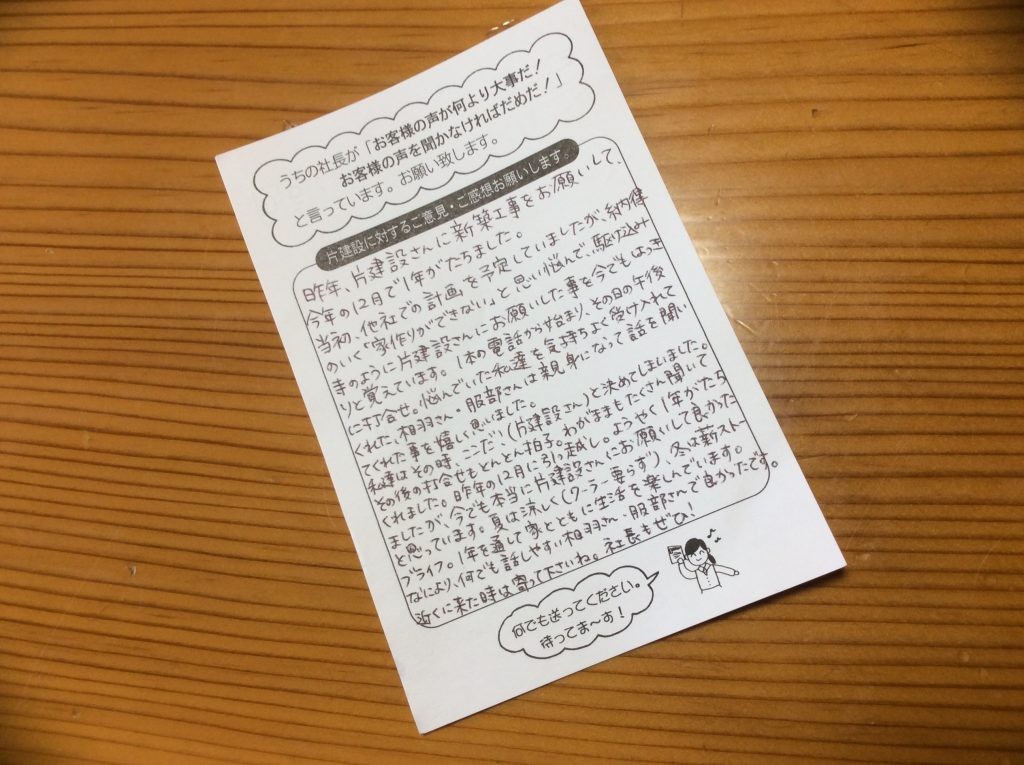 うちの社長が「お客様の声が何より大事だ!
お客様の声を聞かなければだめだ!」
と言っています。お願い致します。
片建設に対するご意見・ご感想お願いします。
昨年、片建設さんに新築工事をお願いして、
今年の12月で1年がたちました。
当初、他社での計画を予定していましたが、納得
のいく「家作りができない」と思い悩んで、駆け込み
寺のように片建設さんにお願いした事を今でもはっき
りと覚えています。1本の電話から始まり、その日の午後
に打合せ。悩んでいた私達を気持ちよく受け入れて
くれた、相羽さん・服部さんは親身になって話を聞い
てくれた事を嬉しく思いました。
私達はその時、ここだ!(片建設さん)と決めてしまいました。
その後の打合せもとんとん拍子。わがままもたくさん聞いて
くれました。昨年の12月に引っ越し。ようやく1年がたち
ましたが、今でも本当に片建設さんにお願いして良かった
と思っています。夏は涼しく(クーラー要らず)、冬は薪ストー
ブライフ。1年を通して家とともに生活を楽しんでいます。
なにより、何でも話しやすい相羽さん、服部さんで良かったです。
近くに来た時は寄って下さいね。社長もぜひ!
何でも送ってください。
待ってま〜す!